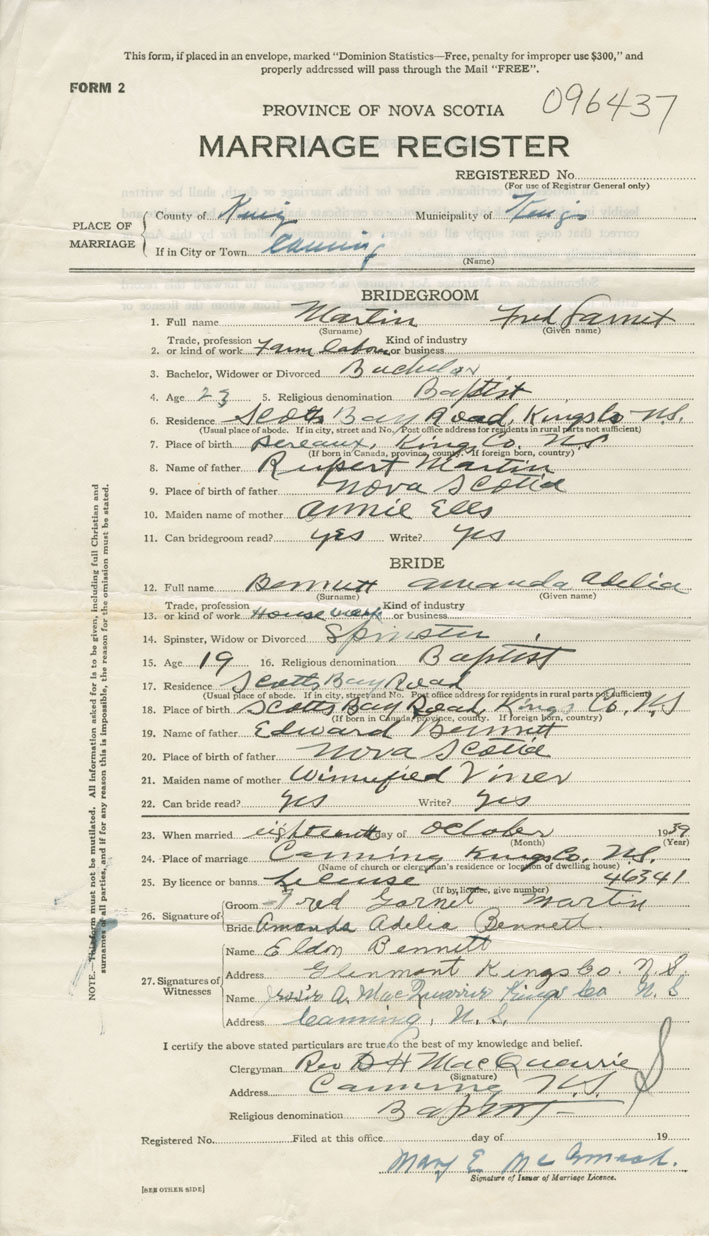 This form, if placed in an envelope, marked "Dominion Statistics—Free, penalty for improper use $300," and
properly addressed will pass through the Mail "FREE".
FORM 2
096437
PROVINCE OF NOVA SCOTIA
MARRIAGE REGISTER
REGISTERED No.
(For use of Registrar General only)
PLACE OF MARRIAGE
County of Kings Municipality of Kings
If in City or Town Canning
(Name)
BRIDEGROOM
1. Full name Martin Fred Garnet
(Surname) (Given name)
2. Trade, profession or kind of work Farm labor Kind of industry or business
3. Bachelor, Widower or Divorced Bachelor
4. Age 23 5. Religious denomination Baptist
6. Residence Scotts Bay Road, Kings Co N.S.
(Usual place of abode. If in city, street and No. Post office address for residents in rural parts not sufficient)
7. Place of birth Pereaux, King Co. N.S
(If born in Canada, province, county. If foreign born, country)
8. Name of father Rupert Martin
9. Place of birth of father Nova Scotia
10. Maiden name of mother Annie Ells
11. Can bridegroom read? yes Write? yes
BRIDE
12. Full name Bennett Amanda Adelia
(Surname) (Given name)
13. Trade, profession or kind of work House work Kind of industry or business
14. Spinster, Widow or Divorced Spinster
15. Age 19 16. Religious denomination Baptist
17. Residence Scotts Bay Road
(Usual place of abode. If in city, street and No. Post office address for residents in rural parts not sufficient)
18. Place of birth Scotts Bay Road, Kings Co. N.S
(If born in Canada, province, county. If foreign born, country)
19. Name of father Edward Bennett
20. Place of birth of father Nova Scotia
21. Maiden name of mother Winnifred Viner
22. Can bride read? yes Write? yes
23. When married eighteenth day of October 1939
(Month) (Year)
24. Place of marriage Canning Kings Co. N.S.
(Name of church or clergyman's residence or location of dwelling house)
25. By licence or banns License 46341
(If by licence, give number)
26. Signature of
Groom Fred Garnet Martin
Bride Amanda Adelia Bennett
27. Signatures of Witnesses
Name Eldon Bennett
Address Glenmont Kings Co. N.S.
Name A. MacQuarrie Kings Co N.S
Address Canning, N.S.
I certify the above stated particulars are true to the best of my knowledge and belief.
Clergyman Rev D H MacQuarrie
(Signature)
Address Canning N.S.
Religious denomination Baptist
Registered No. Filed at this office day of 19
Mary E
Signature of Issuer of Marriage Licence.
[SEE OTHER SIDE]
NOTE.—This form must not be mutilated. All information asked for is to be given, including full Christian and
surnames of all parties, and if for any reason this is impossible, the reason for the omission must be stated.